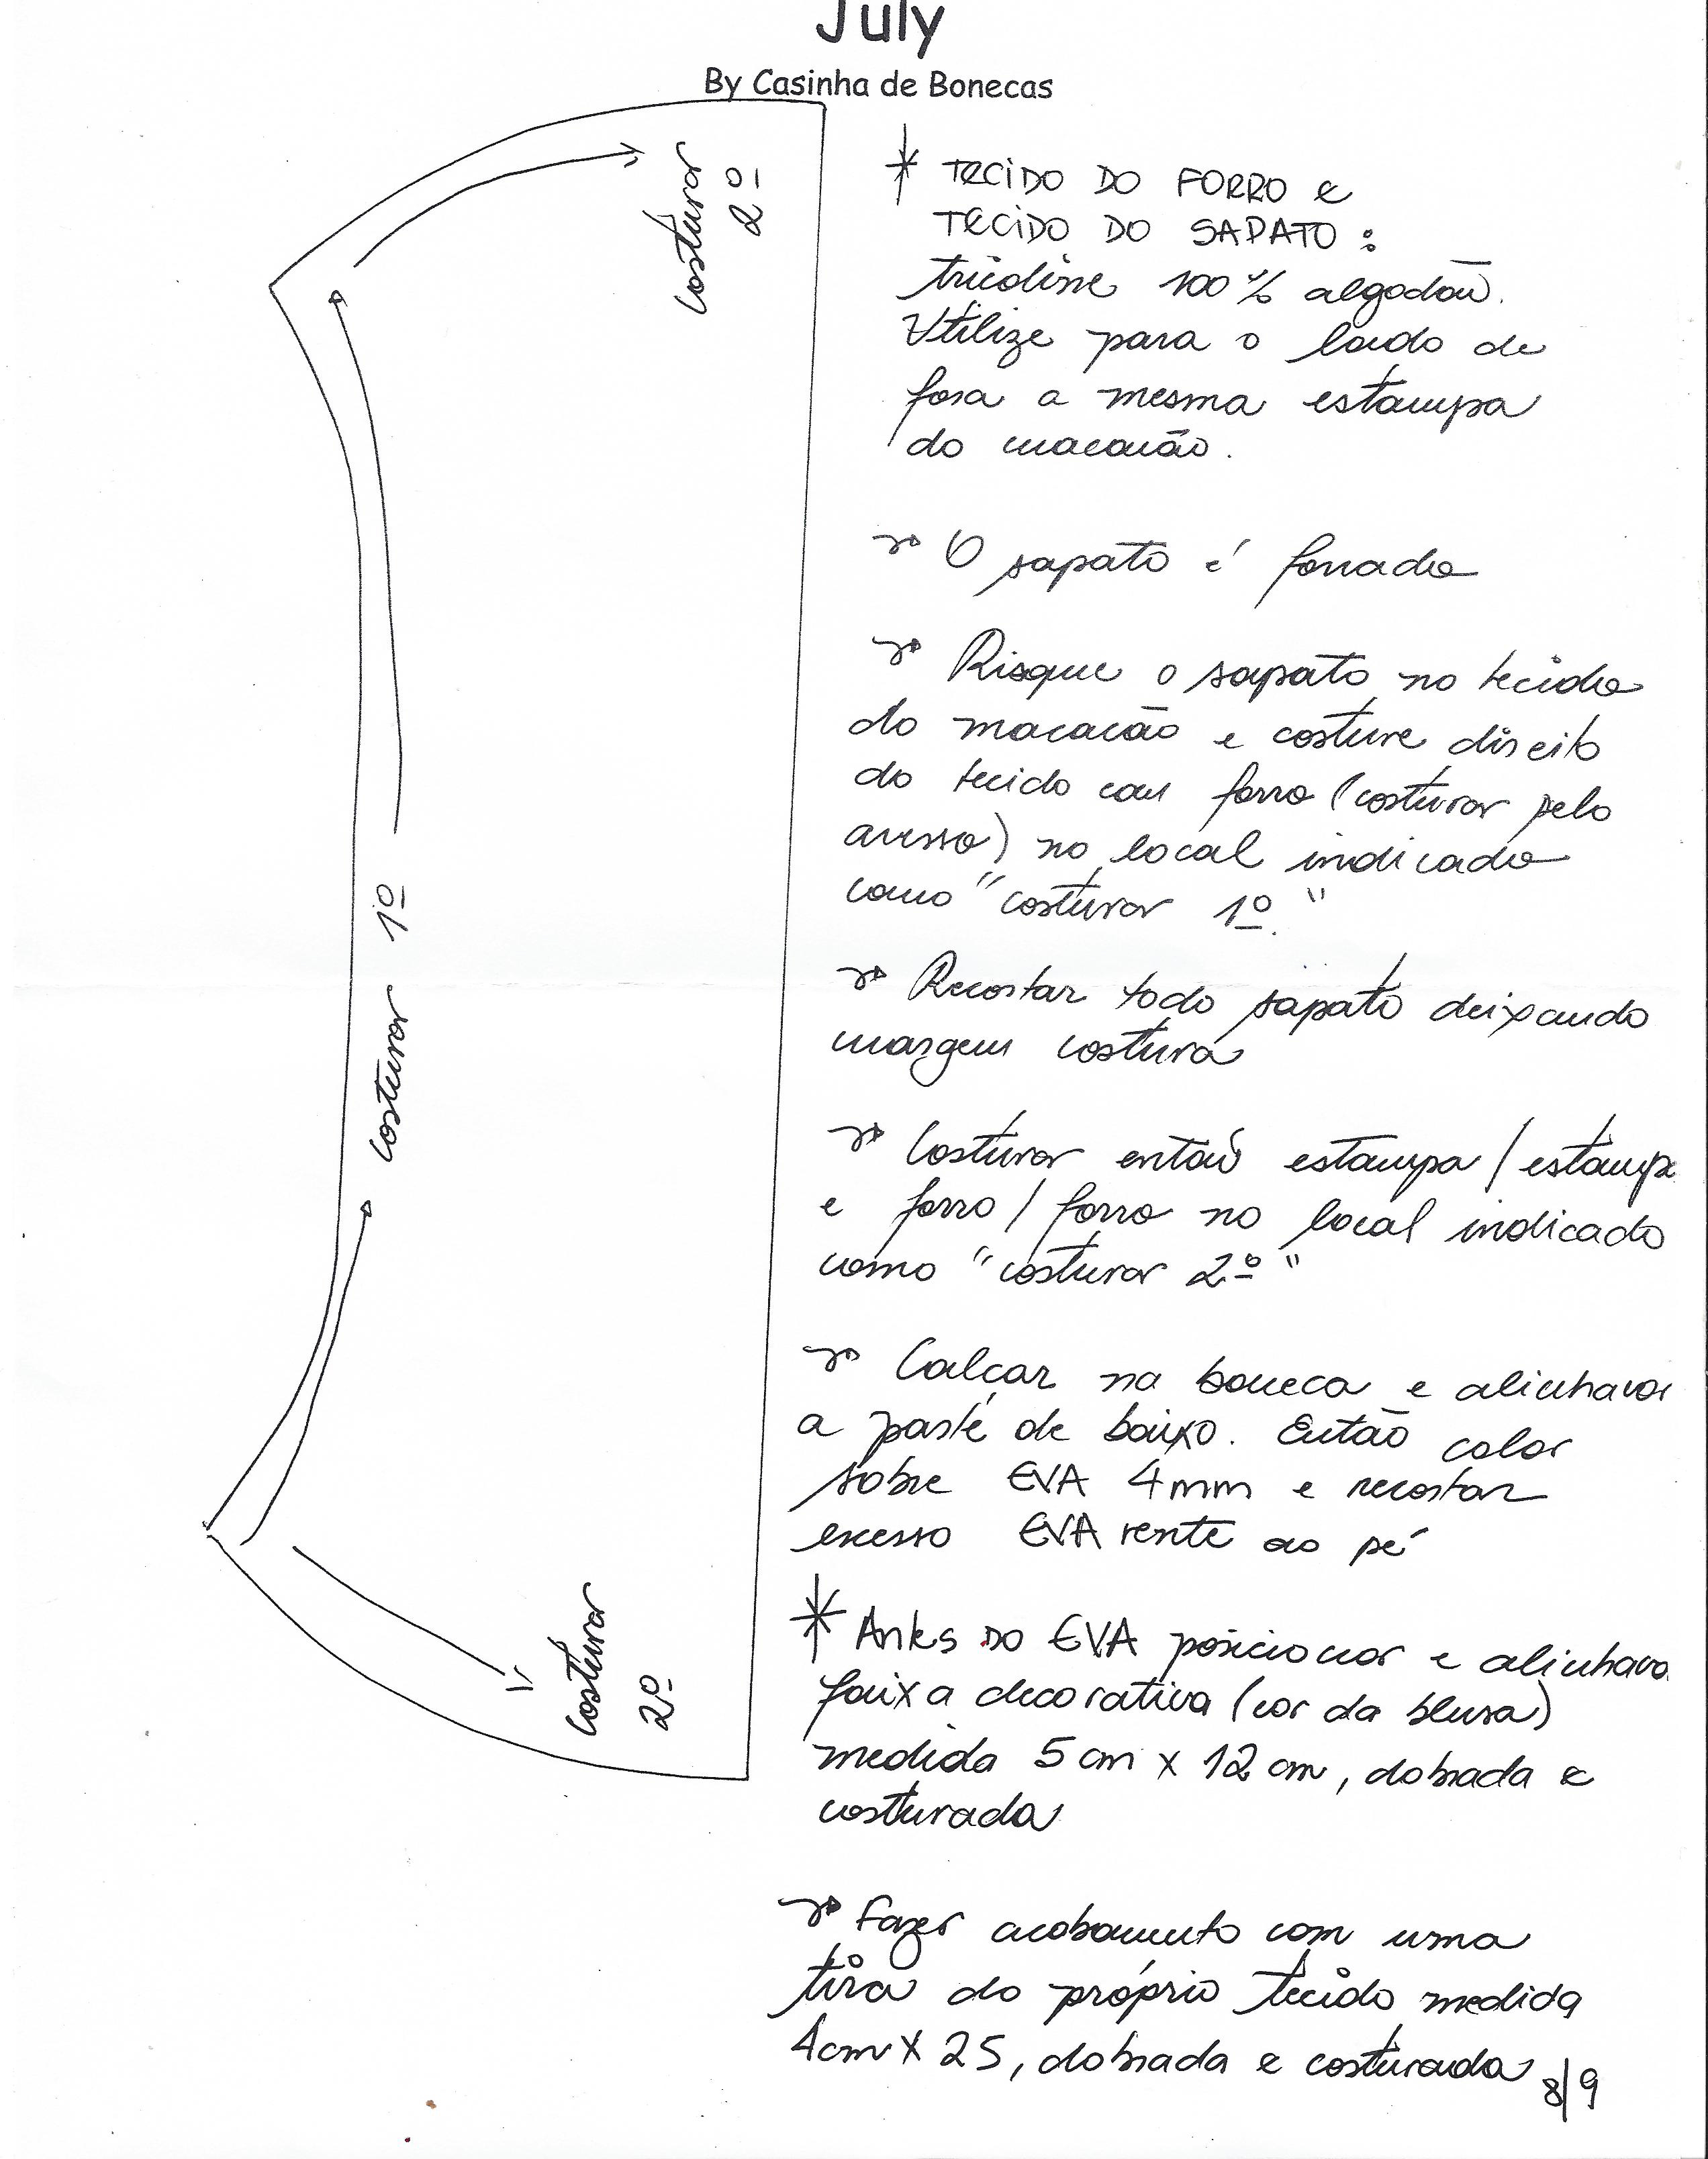 July
By Casinha de Bonecas
costurar
2º
costurar 1º
costurar
2º
* TECIDO DO FORRO e
TECIDO DO SAPATO:
tricoline 100% algodão.
Utilize para o lado de
fora a mesma estampa
do macacão.
O sapato é forrado
Risque o sapato no tecido
do macacão e costure direito
do tecido com forro (costurar pelo
avesso) no local indicado
como "costurar 1º."
Recortar todo sapato deixando
margem costura
Costurar então estampa/estampa
e forro/forro no local indicado
como "costurar 2º"
Calçar na boneca e alinhavar
a parte de baixo. Então colar
sobre EVA 4mm e recortar
excesso EVA rente ao pé
* Antes do EVA posicionar e alinhava
faixa decorativa (cor da blusa)
medida 5 cm x 12 cm, dobrada e
costurada
Fazer acabamento com uma
tira do próprio tecido medida
4cm X 25, dobrada e costurada
8/9